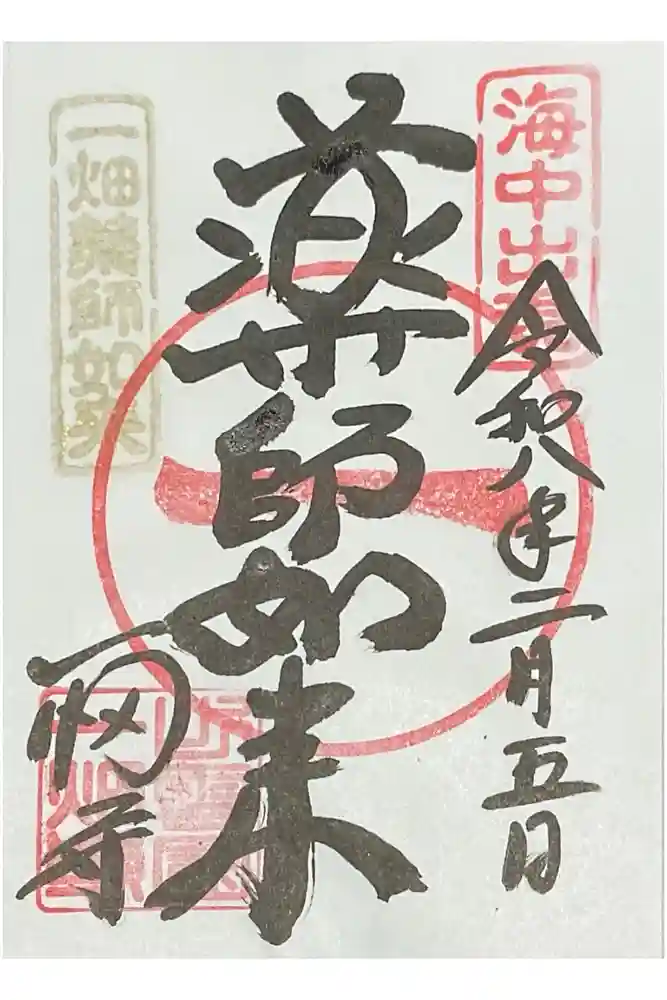 海中出現
令和八年二月五日
薬師如来
一畑薬師如来
一畑寺